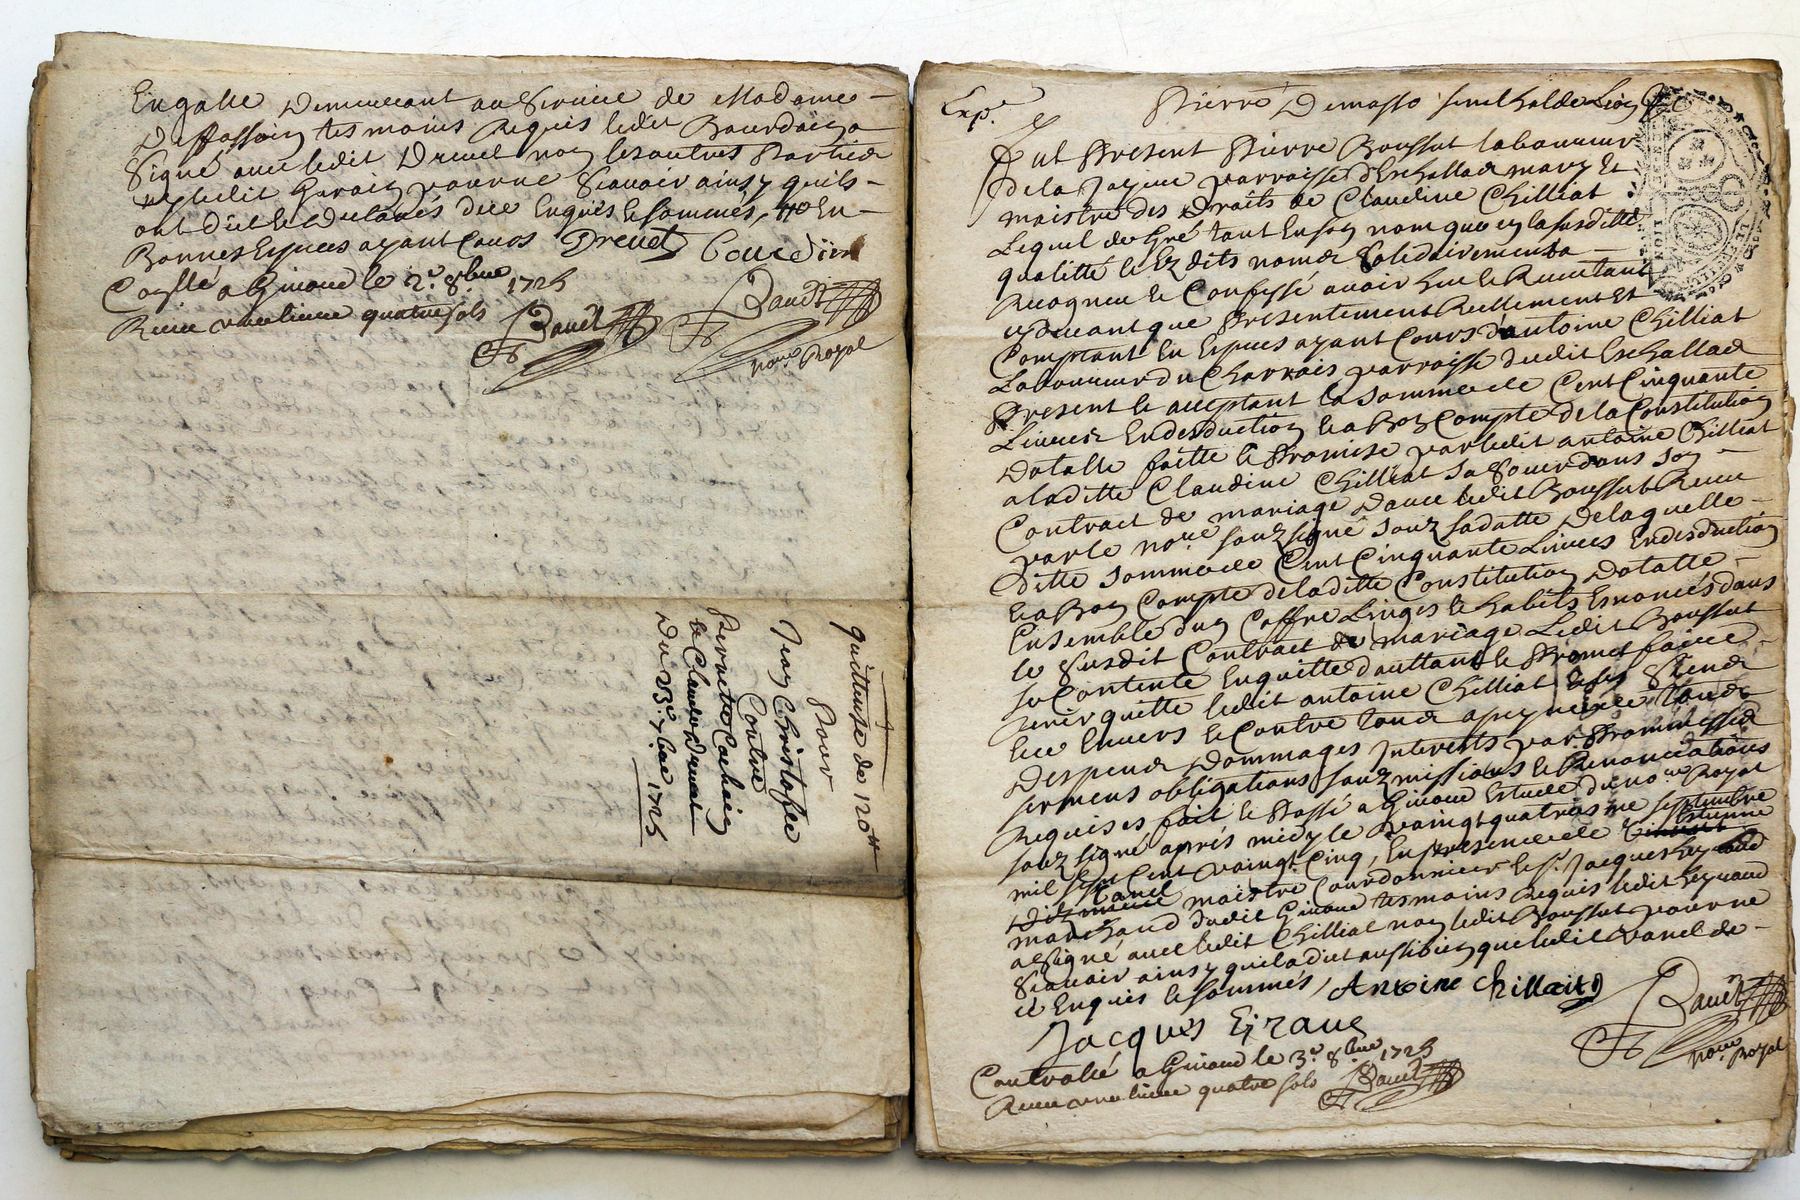 Engalle Demeurant au Service de Madame
Duffossoir tesmoins Requis ledit Bourdain a
Signé avec ledit Drevet non les autres Parties
ny ledit Garain pour ne Scavoir ainsy quils
ont dit et declarés de ce Enquis et sommés, En
Bonnes Especes ayant Cours Drevet Bourdin
Conllé a Givord le 2e. 8bre 1725
Receu une livre quatre sols
Baudt
Baudt
nore Royal
quittence de 120tt
Pour
Jean Christofle
Contre
Pernette Cochain
et Claude Drevet
Du 23e. 7bre 1725
Exp.e
Pierre Demasso senechal de Lion
Fut Present Pierre Boussut laboureur
de la parroisse d'Eschallad mary Et
maistre des Droits de Claudine Chilliat
Lequel de Gré tant En son nom que en la susditte
qualitté et Ez dits noms Solidairement a
Recogneu et Confessé avoir heu et Receu tant
cydevant que Presentement Reellement Et
Comptant En Especes ayant Cours d'antoine Chilliat
Laboureur du Charrais parroisse dudit Eschallad
Present et acceptant la Somme de Cent Cinquante
Livres En desduction et a Bon Compte de la Constitution
Dotalle faitte et Promise par ledit antoine Chilliat
a laditte Claudine Chilliat sa soeur dans son
Contract de mariage avec ledit Boussut Receu
par le nore souzsigné souz sa datte De laquelle
ditte somme de Cent Cinquante Livres En desduction
et a Bon Compte de laditte Constitution Dotalle
Ensemble dun Coffre Linges et habits Enoncés dans
le Susdit Contract de mariage Ledit Boussut
se Contente En quitte dauttant et Promet faire
tenir quitte ledit antoine Chilliat et les Siens
Envers et Contre tous a peyne de tous
Despens Dommages Interests par Promesses
sermens obligations souzmissions et Renonciations
Requises, fait et Passé a Givord Estude du nore Royal
souzsigné aprés midy le vaingtquatrieme septembre
mil sept Cent vaingt Cinq, En presence de Estienne
Vanel maistre Courdonnier et sr. Jacques Eyraud
marchand dudit Givord tesmoins Requis ledit Eyraud
a Signé avec ledit Chilliat non ledit Boussut pour ne
Scavoir ainsy quil a dit aussi bien que ledit vanel de
ce Enquis et sommés, Antoine Chilliait
Jacques Eiraud
Baudt
nore Royal
Controllé a Givord le 3e. 8bre 1725
Receu une livre quatre sols Baudt